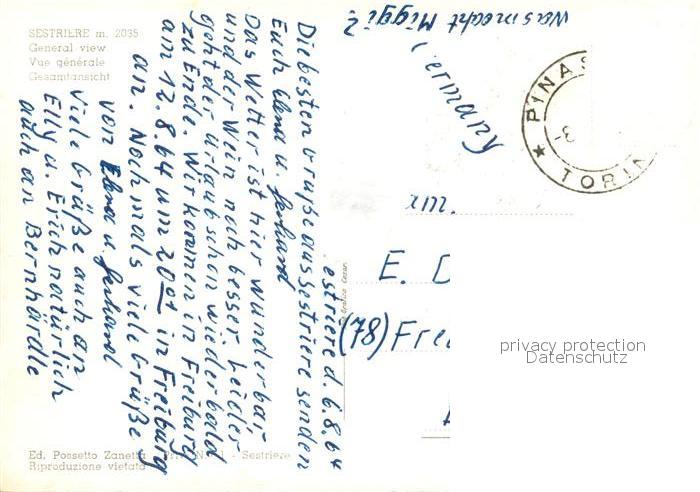 SESTRIERE m. 2035
General view
Vue générale
Gesamtansicht
estriere d. 6.8.64
Die besten Grüße aus Sestriere senden
Euch Elena u. Gerhard
Das Wetter ist hier wunderbar
und der Wein noch besser. Leider
geht der Urlaub schon wieder bald
zu Ende. Wir kommen in Freiburg
am 12.8.64 um 20 01 in Freiburg
an. Nochmals viele Grüße
von Elena u. Gerhard
Viele Grüße auch an
Elly u. Erich natürlich
auch an Bernhärdle
Was macht Miggi?
Germany
PINAS
TORIN
E. D
(78) Frei
privacy protection
Datenschutz
Ed. Possetto Zanetta - Sestriere
Riproduzione vietata